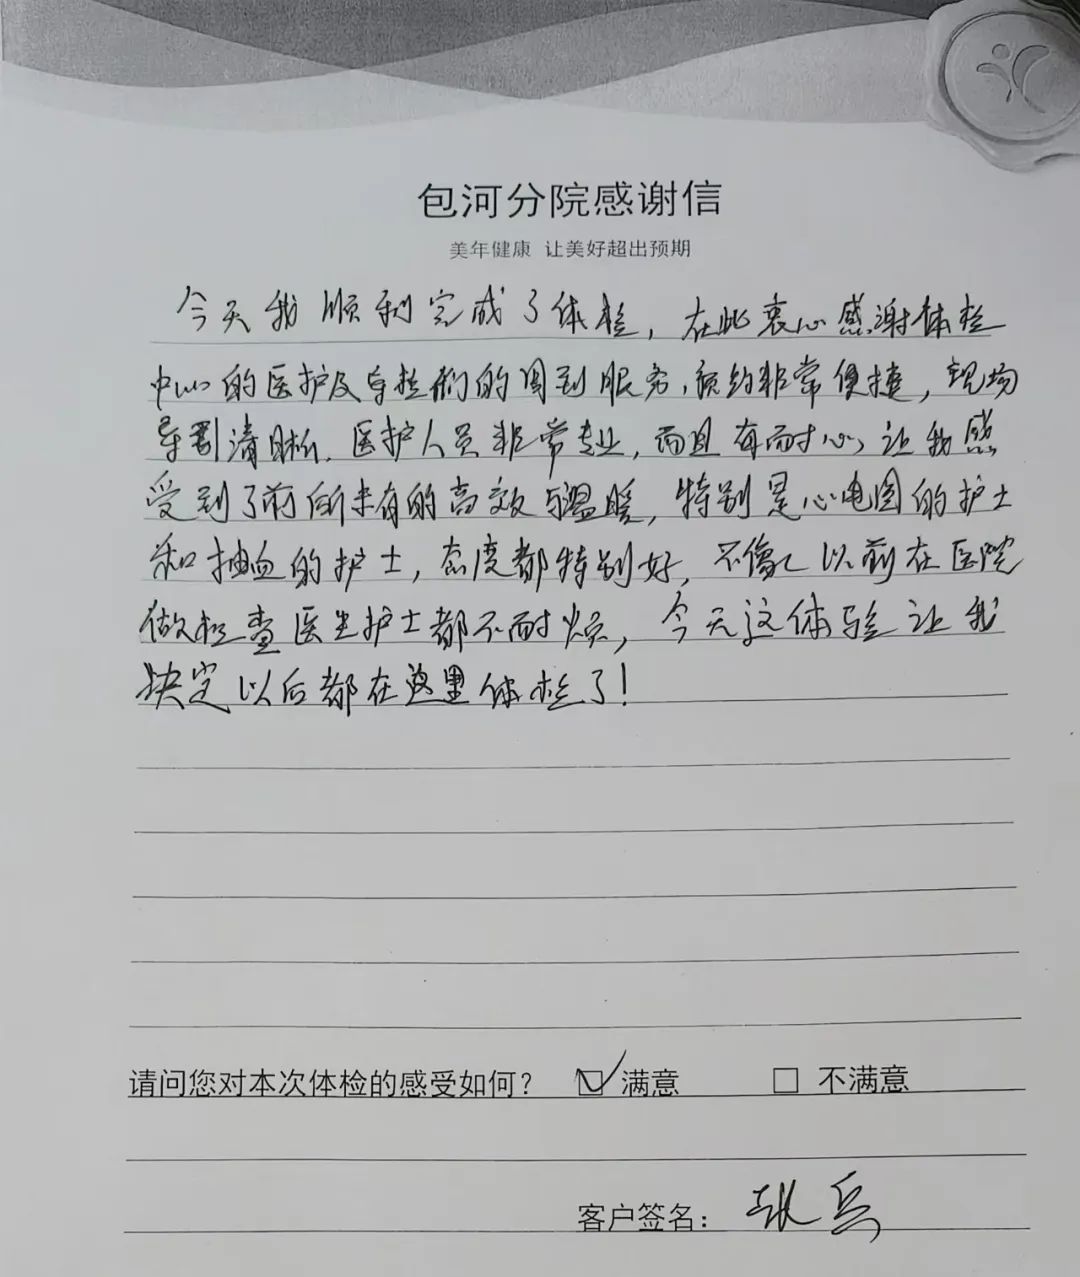 包河分院感谢信
美年健康 让美好超出预期
今天我顺利完成了体检，在此衷心感谢体检
中心的医护及导检们的周到服务，预约非常便捷，现场
导引清晰，医护人员非常专业，而且有耐心，让我感
受到了前所未有的高效与温暖，特别是心电图的护士
和抽血的护士，态度都特别好，不像以前在医院
做检查医生护士都不耐烦，今天这体验让我
决定以后都在这里体检了！
请问您对本次体检的感受如何？ ☑ 满意 □ 不满意
客户签名：